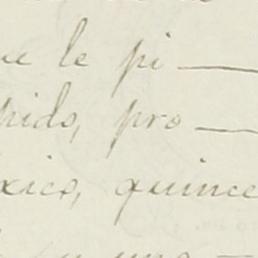 ue le pi —
pido, pro —
xico, quince